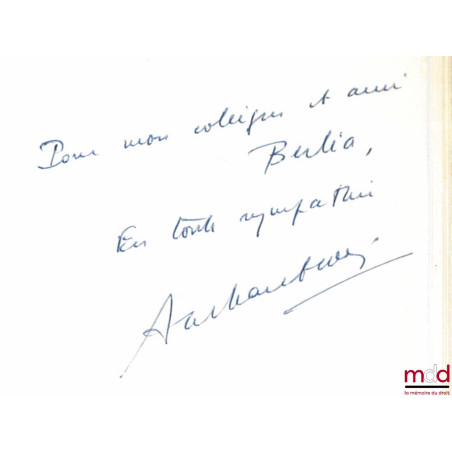 Pour mon collègue et ami
Berlia,
En toute sympathie
mdd
la mémoire du droit.